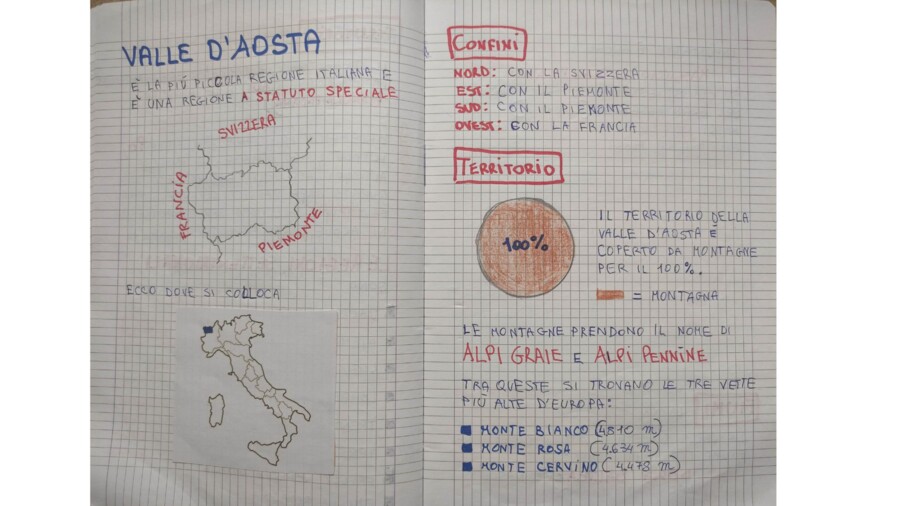 VALLE D'AOSTA
È LA PIÚ PICCOLA REGIONE ITALIANA E
È UNA REGIONE A STATUTO SPECIALE
SVIZZERA
FRANCIA
PIEMONTE
ECCO DOVE SI COLLOCA
CONFINI
NORD: CON LA SVIZZERA
EST: CON IL PIEMONTE
SUD: CON IL PIEMONTE
OVEST: CON LA FRANCIA
TERRITORIO
100%
IL TERRITORIO DELLA
VALLE D'AOSTA È
COPERTO DA MONTAGNE
PER IL 100%.
= MONTAGNA
LE MONTAGNE PRENDONO IL NOME DI
ALPI GRAIE E ALPI PENNINE
TRA QUESTE SI TROVANO LE TRE VETTE
PIÙ ALTE D'EUROPA:
MONTE BIANCO (4.810 m)
MONTE ROSA (4.634 m)
MONTE CERVINO (4.478 m)